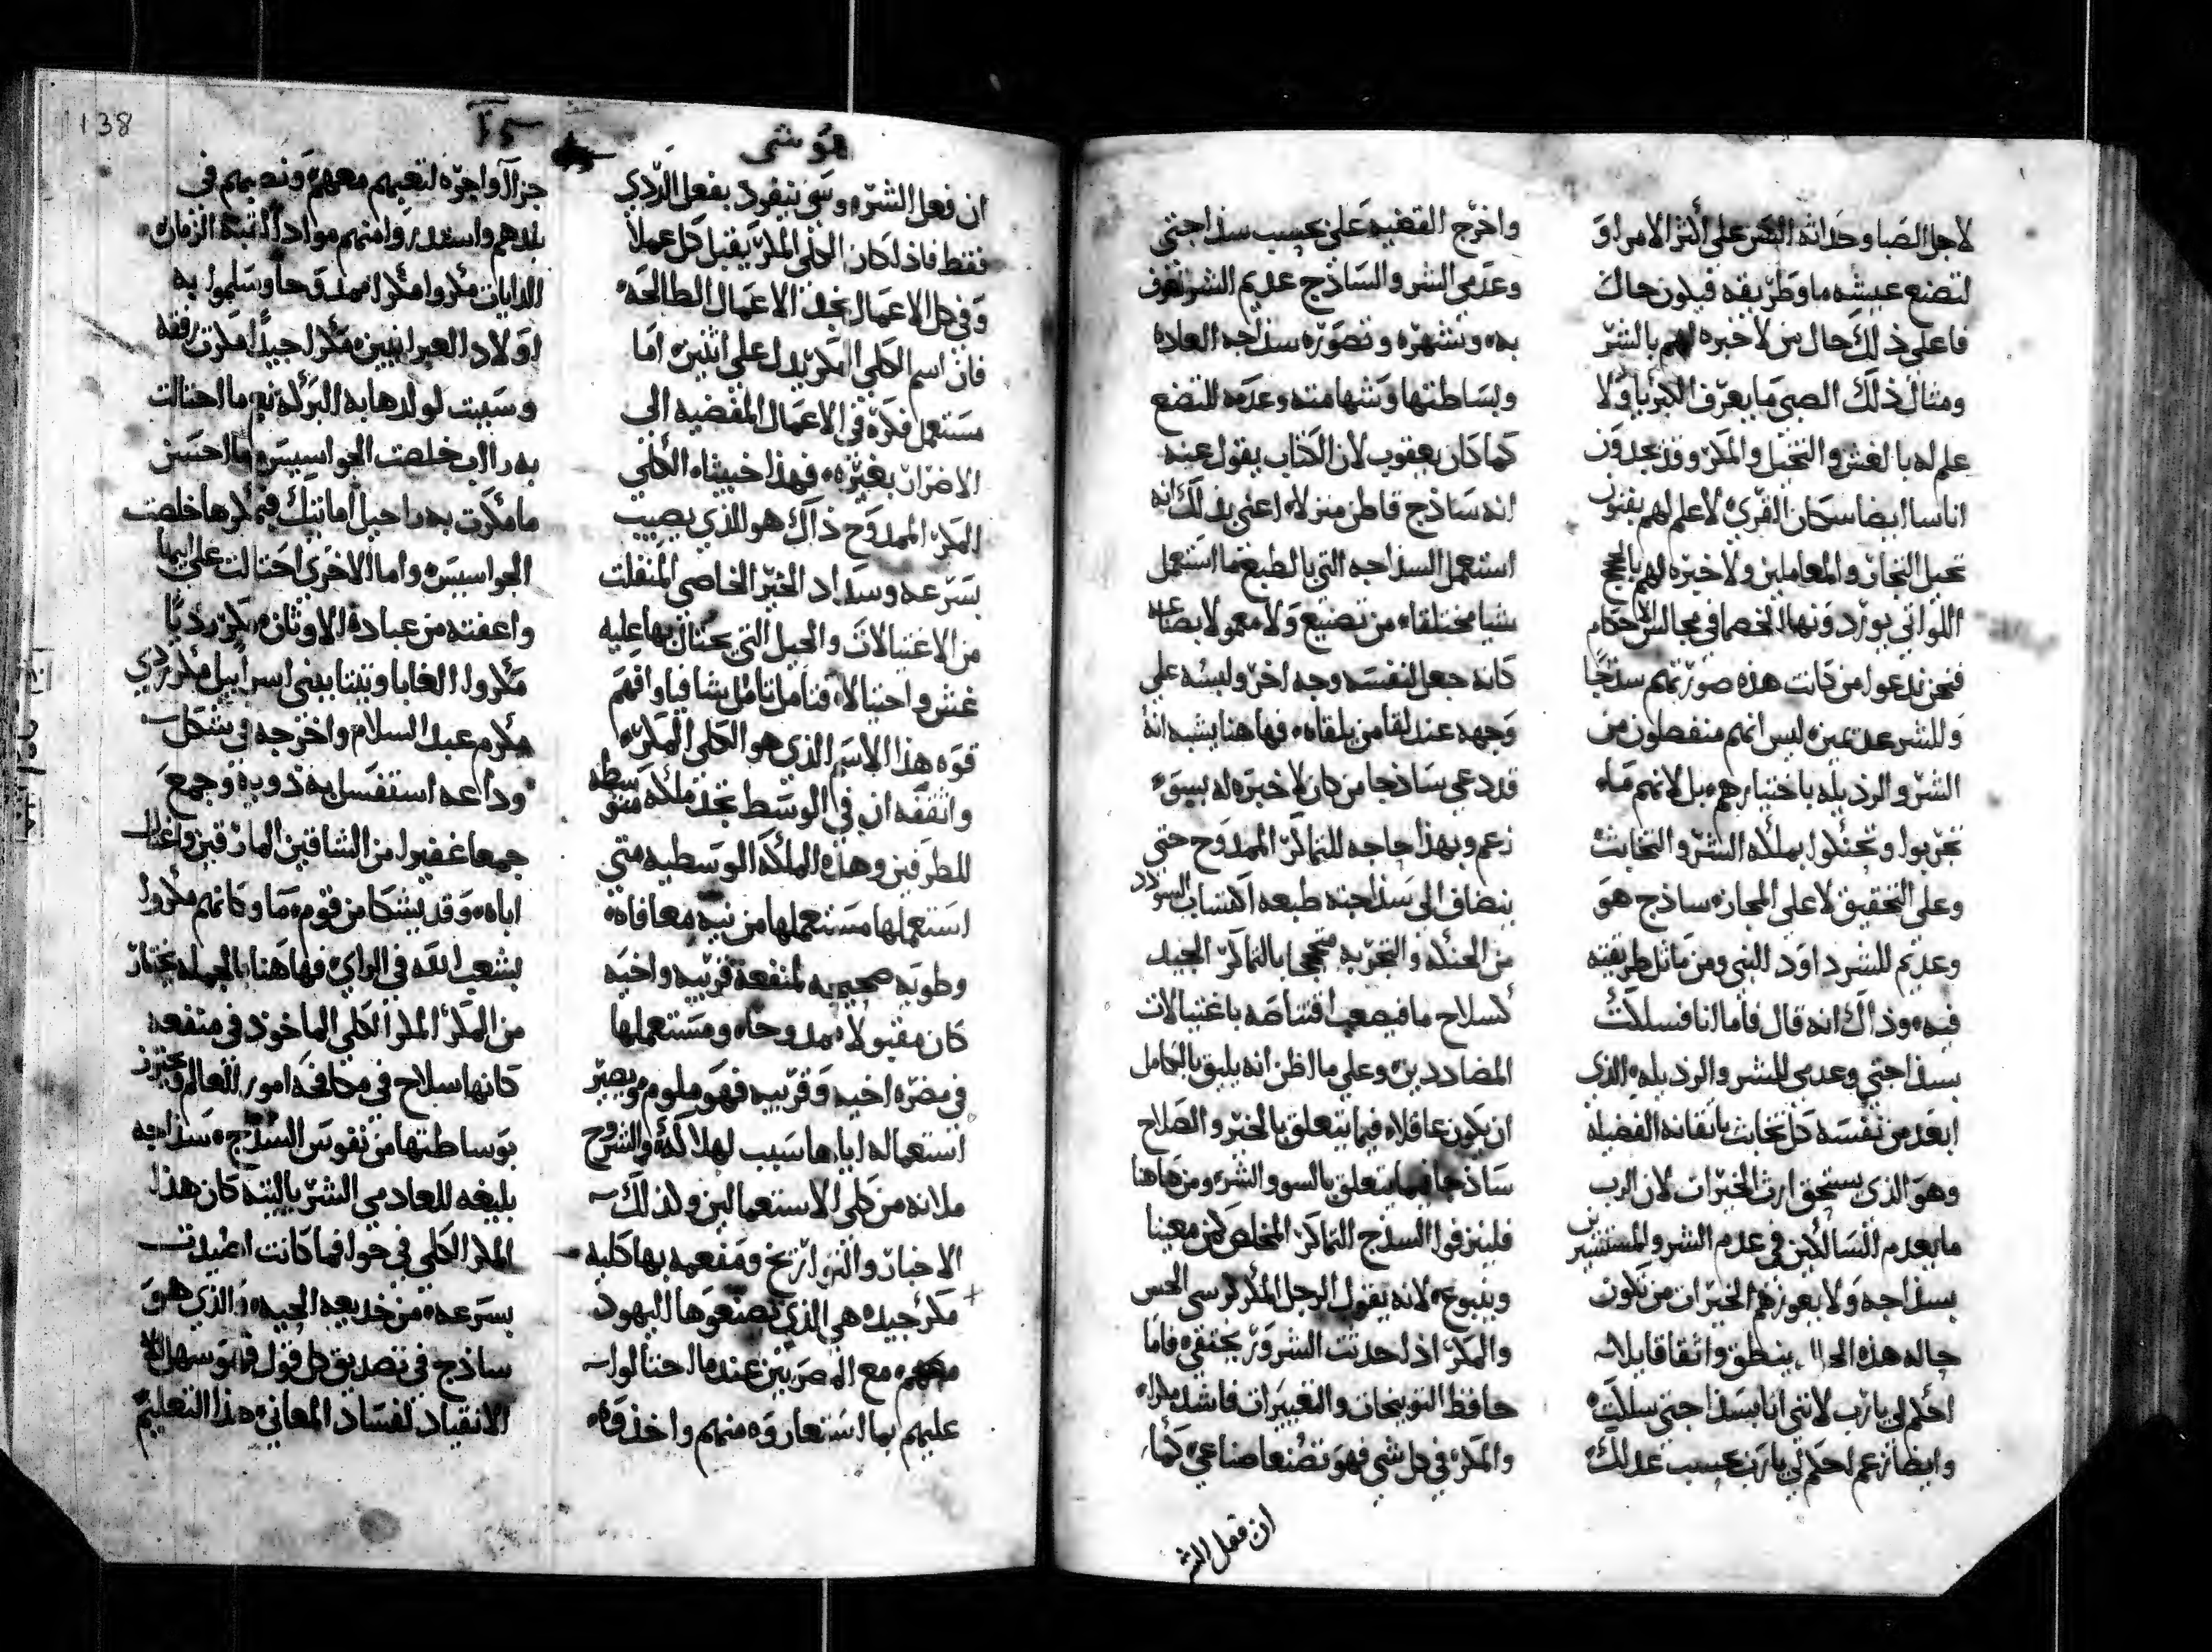 لاجل الصبا وحداثة السن على أكثر الامر او
لتصنع عيشه ما وطريقه فيكون حاك
فاعلي ذلك حال من لا خبره لهم بالشر
ومثال ذلك الصبي ما يعرف الكبريا ولا
علم له بالغش والتخيل والمكر وقد نجدون
اناسا ايضا سكان القري لا علم لهم بفنون
تحيل التجار والمعاملين ولا خبره لهم بالحجج
اللواتي يوردونها الخصما في مجالس الاحكام
فنحن ندعوا من كانت هذه صورتهم سذجا
وللشر عديمين ليس انهم منفصلون من
الشر والرذيله باختيارهم بل لانهم ما
تجربوا وتحنكوا بملكه الشر والتخابث
وعلي التحقيق لا علي المجاز ساذج هو
وعديم للشر داود النبي ومن ماثل طريقته
فيه وذاك انه قال فاما انا فسلكت
بسذاجتي وعدمي للشر والرذيله الذي
ابعد من نفسه كل تخابث باتقانه الفضيله
وهو الذي يستحق ارث الخيرات لان الرب
ما يعدم السالكين في عدم الشر والمستشيرين
بسذاجه ولا يعوزهم الخيرات من تكون
حاله هذه الحال ينطق واثقا قايلا
احكم لي يارب لانني انا بسذاجتي سلكت
وايضا زعم احكم لي يارب بحسب عدلك
واخرج القضيه علي بحسب سذاجتي
وعدمي الشر والساذج عديم الشر تعرف
به وتشهره وتصوره سذاجه العاده
وبساطتها وشهامته وعدمه للتصنع
كما كان يعقوب لان الكتاب يقول عنه
انه ساذج قاطن منزلا اعني بذلك انه
استعمل السذاجه التي بالطبع ما استعمل
شيا مختلقا من تصنيع ولا معمولا بصناعه
كانه جعل لنفسه وجه اخر ولبسه علي
وجهه عند لقا من يلقاه فهاهنا يشبه انه
قد دعي ساذجا من كان لا خبره له بسو
زعم وبهذا حاجه للتماكر الممدوح حتي
ينضاف الي سذاجته طبعه اكتساب السودد
من الحنكه والتجربه متحججا بالتماكر الجيد
كسلاح ما فيصعب اقتناصه باغتيالات
المضاددين وعلي ما اظن انه يليق بالكامل
ان يكون عاقلا فيما يتعلق بالخير والصلاح
ساذجا فيما يتعلق بالسو والشر ومن هاهنا
فلينزفوا السذج التماكر المخلص كمن معينا
وينبوع لانه يقول الرجل المكر كرسي الحس
والمكر اذا حدثت الشرور يختفي فاما
حافظ التوبيخات والتعييرات فاشد مكرا
والمكر في كل شي فهو تصنعا صناعي كما
ان فعل الشر
هوشي
ان فعل الشر وشي ينفرد بفعل الردي
فقط فاذا كان الكلي المكر يقبل كل عملا
وفي كل الاعمال نجد الاعمال الطالحه
فان اسم الكلي المكر يدل علي اثنين اما
مستعمل فكره في الاعمال المفضيه الي
الاضرار بغيره فهذا خبيثا الكلي
المكر الممدوح ذاك هو الذي يصيب
بسرعه وسداد الخير الخاصي المنفلت
من الاغتيالات والحيل التي يحتال بها عليه
غش واحتيالا فتامل تاملا شافيا وافهم
قوه هذا الاسم الذي هو الكلي المكر
واثقفه ان في الوسط نجد ملكه متوسطه
للطرفين وهذه الملكه الوسطيه متي
استعملها مستعملها من نيه معافاه
وطويه صحيحه لمنفعة قريبه واخيه
كان مقبولا ممدوحا ومستعملها
في مضره اخيه وقريبه فهو ملوم ويصير
استعماله اياها سبب لهلاكه والشروح
ملانه من كلي الاستعمالين ولذلك
الاخبار والتواريخ ومفعمه بها كليه
مكر جيده هي الذي تصنعوها اليهود
معهم مع المصريين عند ما احتالوا
عليهم بما استعاروه منهم واخذوه
جزا لآواجره لتعبهم معهم ونصبهم في
بلدهم واستدروا منهم مواد القبه الزمان
الدايات مكروا مكرا ممدوحا وسلموا به
اولاد العبرانيين مكرا جيدا مكرت رفقه
وسببت لولدها به البركه نعم ما احتالت
به رااب خلصت الجواسيس وما احسن
ما مكرت به راحيل اما تيك فبمكرها خلصت
الجواسيس واما الاخري احتالت علي ابيها
واعفته من عبادة الاوثان مكرا رديا
مكروا الغابا ونيتا بيني اسراييل مكر ردي
مكرم عبد السلام واخرجه في شكل
وداعه استفسل به ذويه وجمع
جمعا غفيرا من الشاقين المارقين واغتال
اباه وقد يشكا من قوم ما وكانهم مكروا
بشعب الله في الراي فهاهنا بالجمله نختار
من المكر المكر الكلي الماخوذ في منفعه
كانها سلاح في مكافحه امور العالم وتحترز
بوساطتها من نفوس السذج سذاجه
بليغه للعادمي الشر ياليته كان هذا
المكر الكلي في حوا فما كانت اغيلت
بسرعه من خديعه الحيه والذي هو
ساذج في تصديق كل قول فهو سهل
الانقياد لفساد المعاني هذا التعليم
138